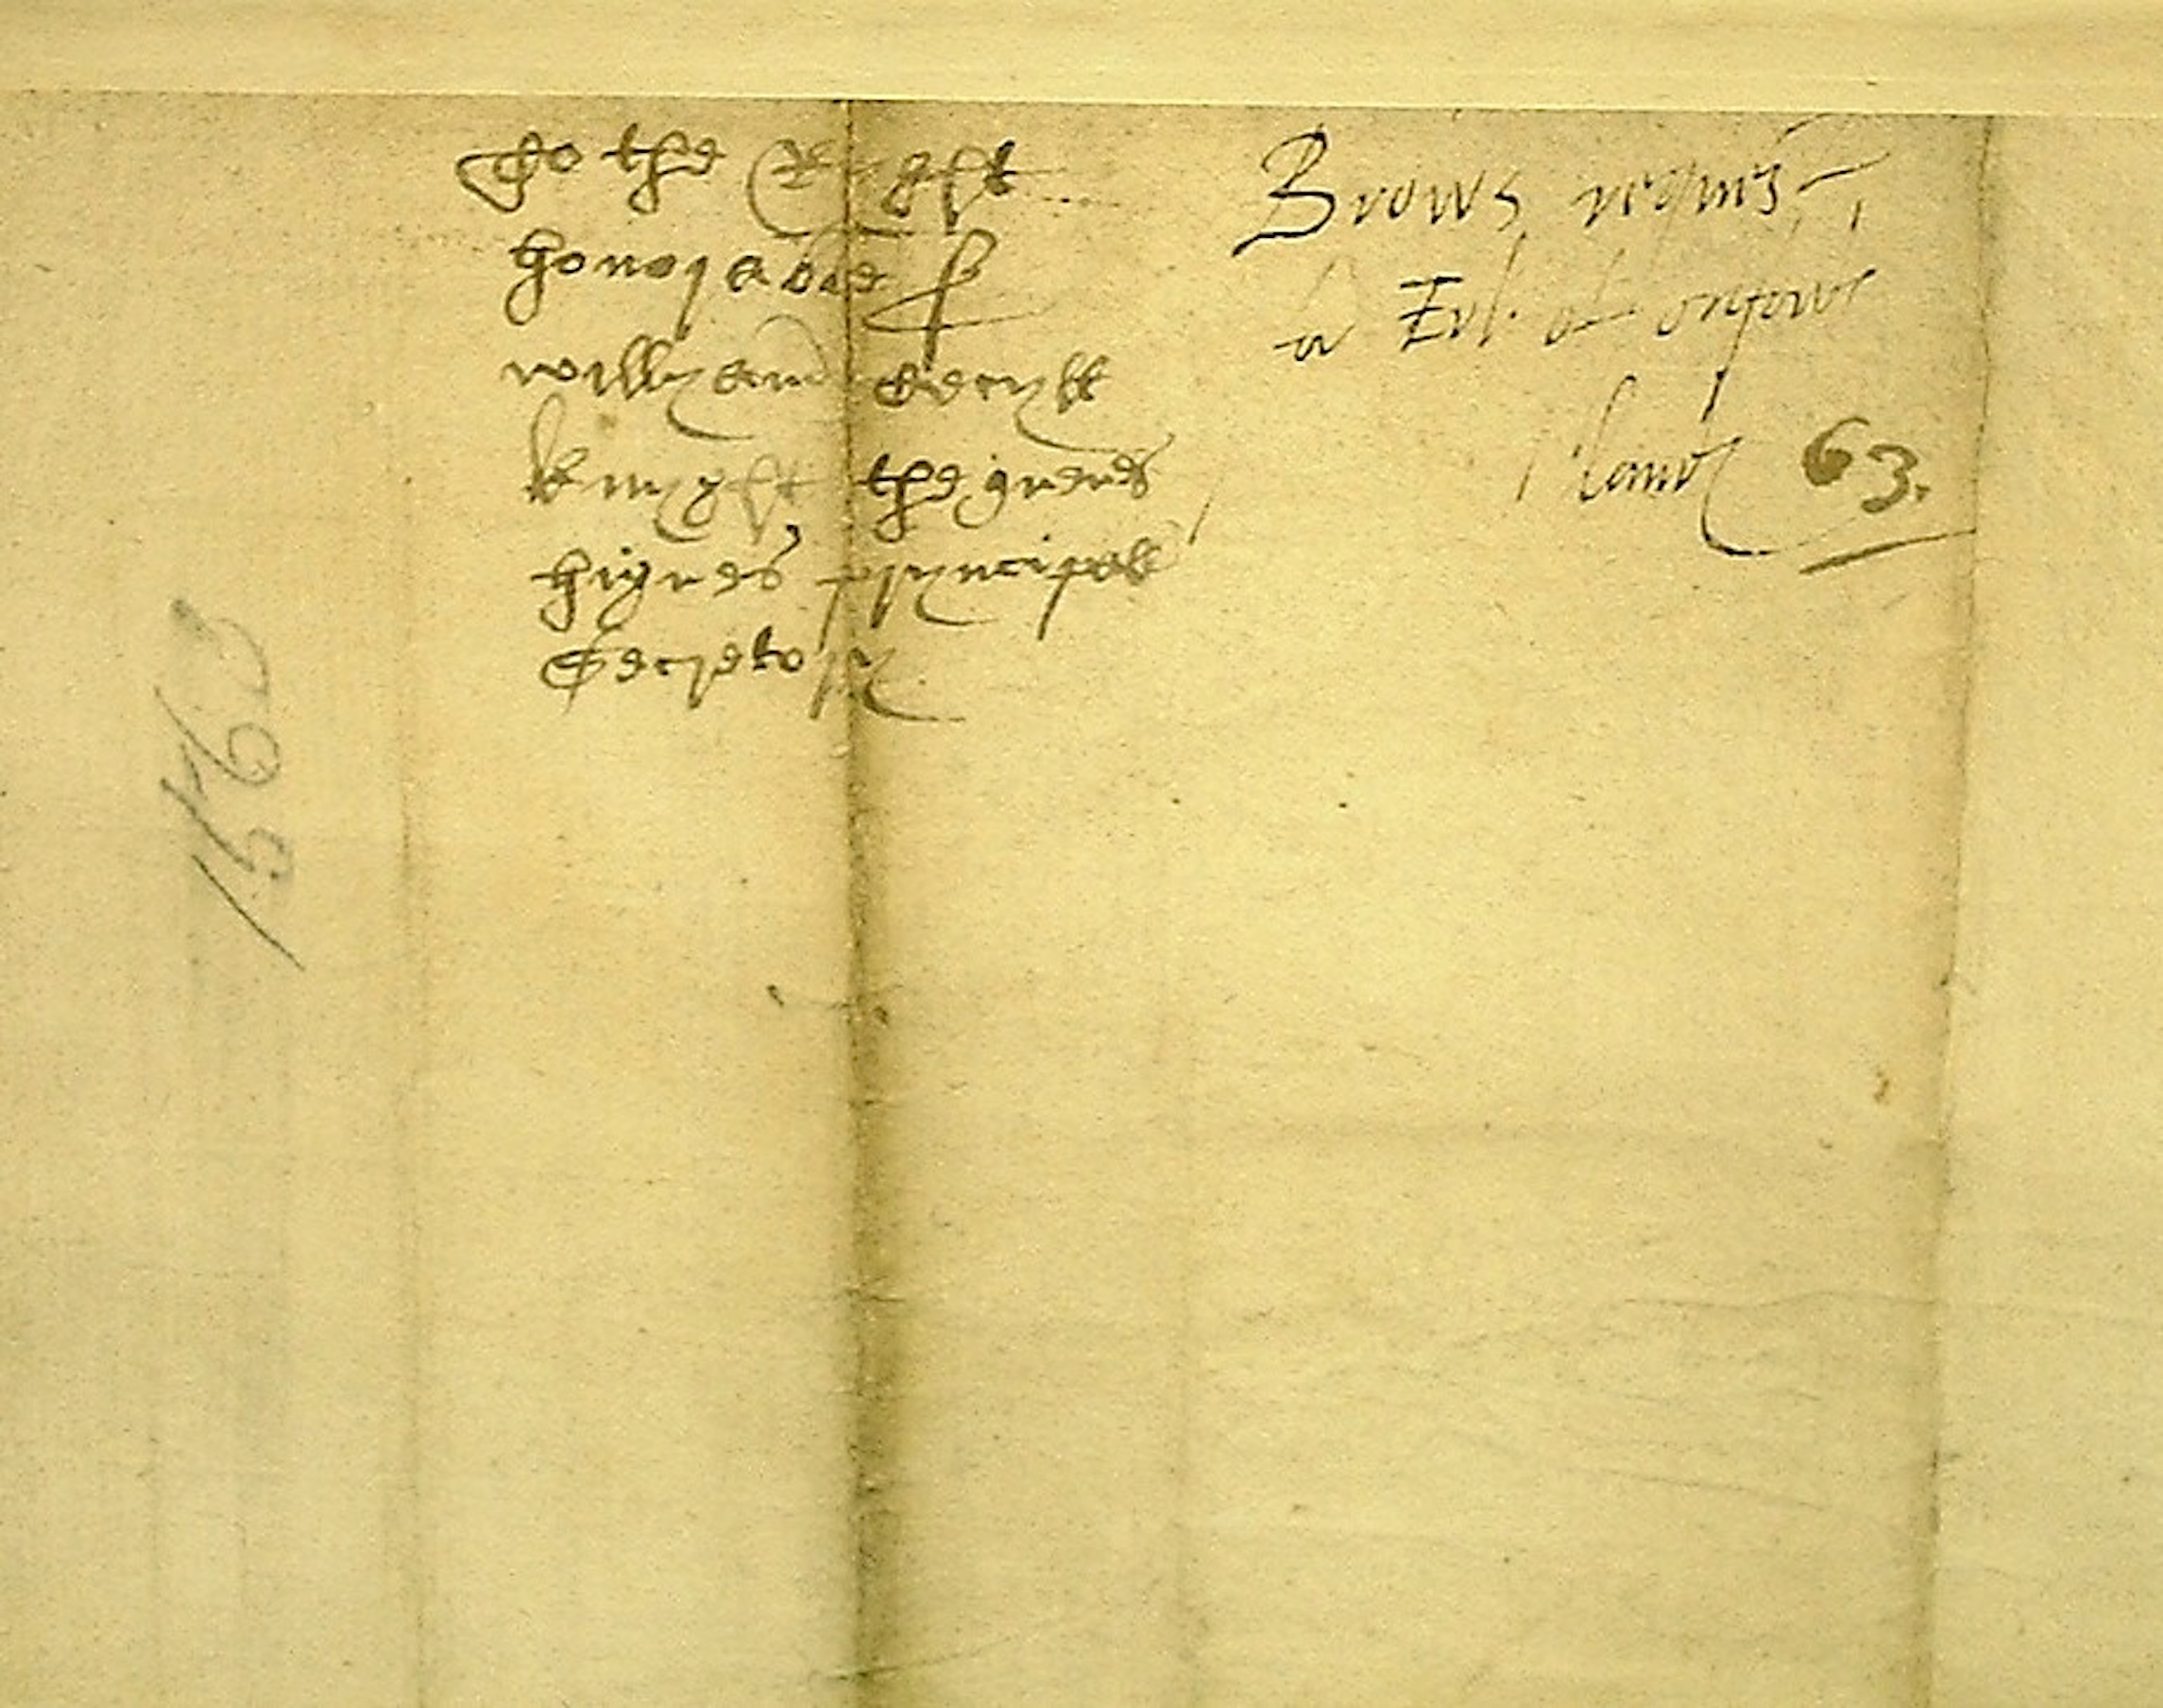 To the Ryght
honorable Sr
wyllyam Cecyll
knyght the quenes
highnes pryncipall
Secretory
Browns
Erl. of
63.
1563